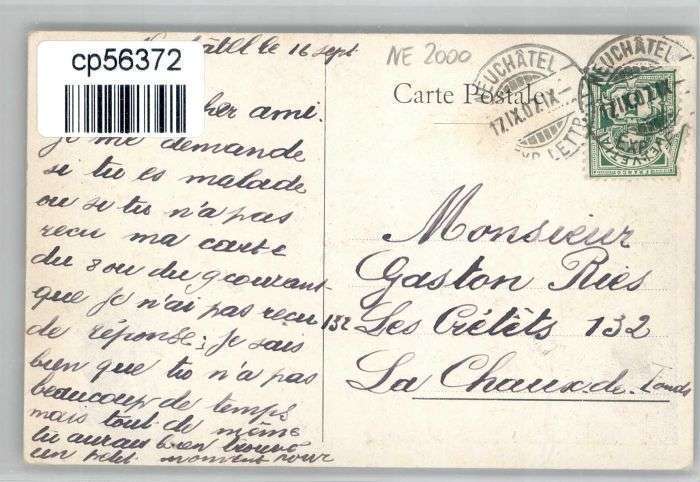 cp56372
tel le 16 sept
NE 2000
Carte Postale
NEUCHÂTEL
17.IX.07.IX
EXP. LETTR.
NEUCHÂTEL
17.IX.07.IX
cher ami.
Je me demande
si tu es malade
ou si tu n'a pas
reçu ma carte
du 8 ou du 9 courant
que je n'ai pas reçu
de réponse; je sais
bien que tu n'a pas
beaucoup de temps
mais tout de même
tu aurais bien trouvé
un petit moment pour
Monsieur
Gaston Ries
132 Les Crétêts 132
La Chaux-de-Fonds